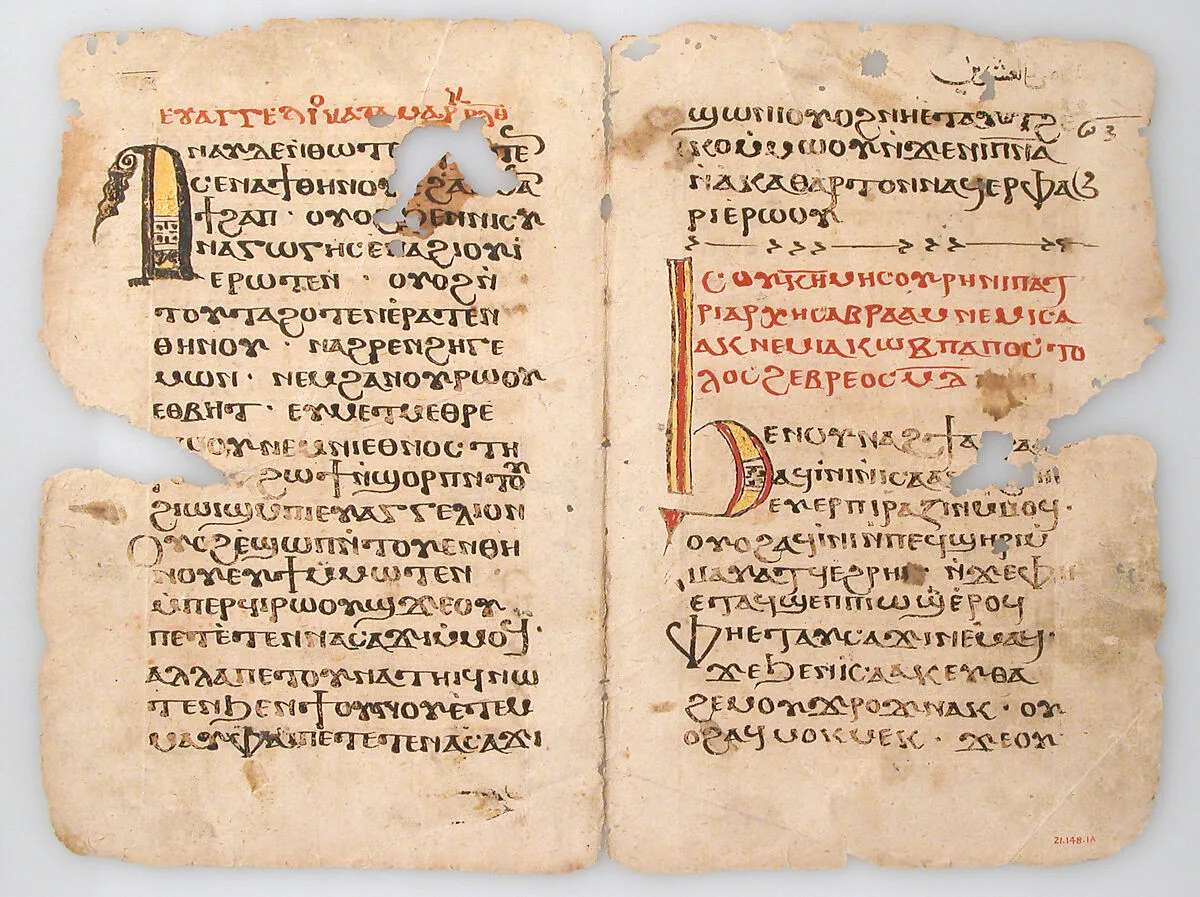 ⲉⲩⲁⲅⲅⲉⲗⲓⲟ ⲕⲁⲧⲁ ⲙⲁⲣ
ⲁⲛⲁⲩ ⲇⲉ ⲛⲑⲱⲧⲉ
ⲥⲉⲛⲁϯⲑⲏⲛⲟⲩ
ϯϩⲁⲡ · ⲟⲩⲟϩ ϧⲉⲛⲛⲓⲥⲩ
ⲛⲁⲅⲱⲅⲏ ⲥⲉⲛⲁϩⲓⲟⲩⲓ
ⲉⲣⲱⲧⲉⲛ · ⲟⲩⲟϩ ⲛ̀
ⲧⲟⲩⲧⲁϩⲟⲧⲉⲛ ⲉⲣⲁⲧⲉⲛ
ⲑⲏⲛⲟⲩ · ⲛⲁϩⲣⲉⲛϩⲏⲅⲉ
ⲙⲱⲛ · ⲛⲉⲙϩⲁⲛⲟⲩⲣⲱⲟⲩ
ⲉⲑⲃⲏⲧ · ⲉⲩⲙⲉⲧⲙⲉⲑⲣⲉ
ⲛⲉⲙⲛⲓⲉⲑⲛⲟⲥ · ⲧⲏ
ϩⲱϯ ⲛ̀ϣⲟⲣⲡ ⲛⲧⲟⲩ
ϩⲓⲱⲓϣ ⲙⲡⲓⲉⲩⲁⲅⲅⲉⲗⲓⲟⲛ
ⲟⲩⲟϩ ⲉϣⲱⲡ ⲛ̀ⲧⲟⲩⲉⲛⲑⲏ
ⲛⲟⲩ ⲉⲩϯ ⲙ̀ⲙⲱⲧⲉⲛ ·
ⲙ̀ⲡⲉⲣϥⲓⲣⲱⲟⲩϣ ϫⲉⲟⲩ
ⲡⲉⲧⲉ̀ⲧⲉⲛⲛⲁⲥⲁϫⲓ ⲙ̀ⲙⲟϥ ·
ⲁⲗⲗⲁ ⲡⲉⲧⲟⲩⲛⲁⲧⲏⲓϥ ⲛⲱ
ⲧⲉⲛ ϧⲉⲛϯⲟⲩⲛⲟⲩ ⲉ̀ⲧⲉⲙ
ⲙⲁⲩ ⲫⲁⲓ ⲡⲉⲧⲉⲧⲉⲛⲁⲥⲁϫⲓ
ϣⲱⲛⲓ ⲟⲩⲟϩ ⲛⲏⲉⲧⲁⲩⲧϩⲉ
ⲙ̀ⲕⲟ ⲙ̀ⲙⲱⲟⲩ ⲛ̀ϫⲉⲛⲓⲡ̅ⲛ̅ⲁ̅
ⲛ̀ⲁⲕⲁⲑⲁⲣⲧⲟⲛ ⲛⲁϥⲉⲣⲫⲁϧ
ⲣⲓ ⲉⲣⲱⲟⲩ
ⲥⲟⲩ ⲕⲏ ⲙⲏⲥⲟⲩⲣⲏ ⲛⲓⲡⲁⲧ
ⲣⲓⲁⲣⲭⲏⲥ ⲁⲃⲣⲁⲁⲙ ⲛⲉⲙ ⲓⲥⲁ
ⲁⲕ ⲛⲉⲙ ⲓⲁⲕⲱⲃ ⲡⲁⲡⲟⲥⲧⲟ
ⲗⲟⲥ ϩⲉⲃⲣⲉⲟⲥ
ϧⲉⲛⲟⲩⲛⲁϩϯ
ⲁϥⲓⲛⲓ ⲛⲓⲥⲁⲁⲕ
ⲉⲩⲉⲣⲡⲓⲣⲁⲍⲓⲛ ⲙ̀ⲙⲟϥ ·
ⲟⲩⲟϩ ⲁϥⲓⲛⲓ ⲙ̀ⲡⲉϥϣⲏⲣⲓ ⲙ̀
ⲙⲁⲩⲁⲧϥ ⲉϩⲣⲏⲓ · ⲛ̀ϫⲉⲫⲏ
ⲉⲧⲁϥϣⲉⲡ ⲡⲓⲱϣ ⲉ̀ⲣⲟϥ
ⲫⲏⲉⲧⲁⲩⲥⲁϫⲓ ⲛⲉⲙⲁϥ ·
ϫⲉ ϧⲉⲛ ⲓⲥⲁⲁⲕ ⲉⲩⲑⲁ
ϩⲉⲙ ⲟⲩϫⲣⲟϫ ⲛⲁⲕ · ⲟⲩ
ⲟϩ ⲁϥⲙⲟⲕⲙⲉⲕ · ϫⲉ ⲟⲩ
21.148.1A